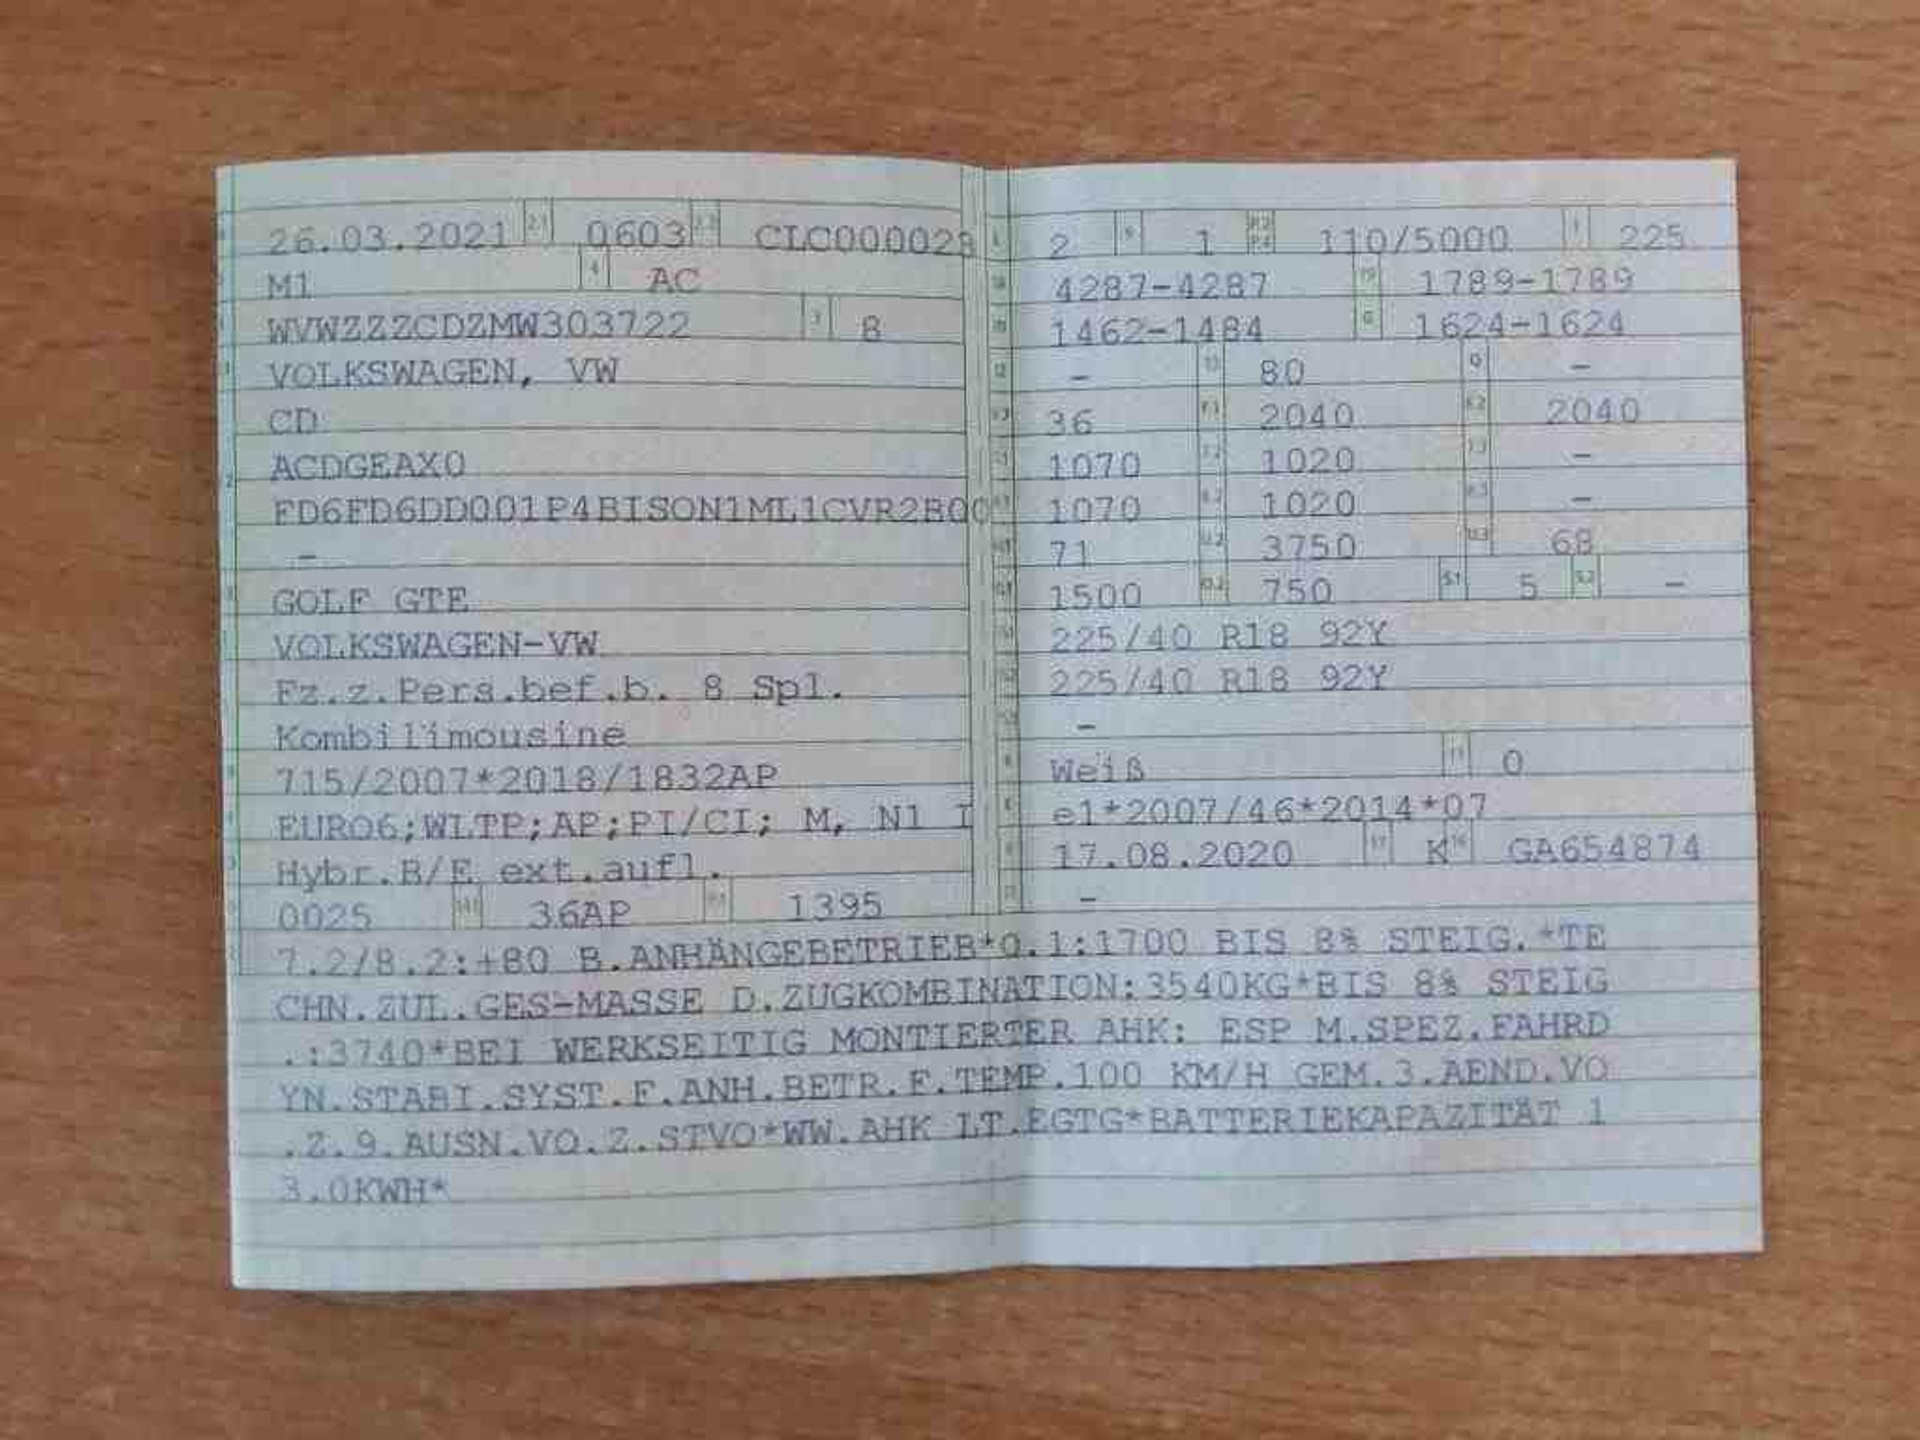 26.03.2021 2.1 0603 2.2 CLC000028
M1 4 AC
WVWZZZCDZMW303722 3 8
VOLKSWAGEN, VW
CD
ACDGEAX0
FD6FD6DD001P4BISON1ML1CVR2B00
-
GOLF GTE
VOLKSWAGEN-VW
Fz.z.Pers.bef.b. 8 Spl.
Kombilimousine
715/2007*2018/1832AP
EURO6;WLTP;AP;PI/CI; M, N1 I
Hybr.B/E ext.aufl.
0025 14.1 36AP P.1 1395
L 2 9 1 P.2 P.4 110/5000 T 225
18 4287-4287 19 1789-1789
20 1462-1484 G 1624-1624
12 - 13 80 Q -
V.7 36 F.1 2040 F.2 2040
7.1 1070 7.2 1020 7.3 -
8.1 1070 8.2 1020 8.3 -
U.1 71 U.2 3750 U.3 68
O.1 1500 O.2 750 S.1 5 S.2 -
225/40 R18 92Y
225/40 R18 92Y
-
R Weiß 11 0
K e1*2007/46*2014*07
6 17.08.2020 17 K 16 GA654874
21 -
7.2/8.2:+80 B.ANHÄNGEBETRIEB*O.1:1700 BIS 8% STEIG.*TE
CHN.ZUL.GES-MASSE D.ZUGKOMBINATION:3540KG*BIS 8% STEIG
.:3740*BEI WERKSEITIG MONTIERTER AHK: ESP M.SPEZ.FAHRD
YN.STABI.SYST.F.ANH.BETR.F.TEMP.100 KM/H GEM.3.AEND.VO
.Z.9.AUSN.VO.Z.STVO*WW.AHK LT.EGTG*BATTERIEKAPAZITÄT 1
3.0KWH*